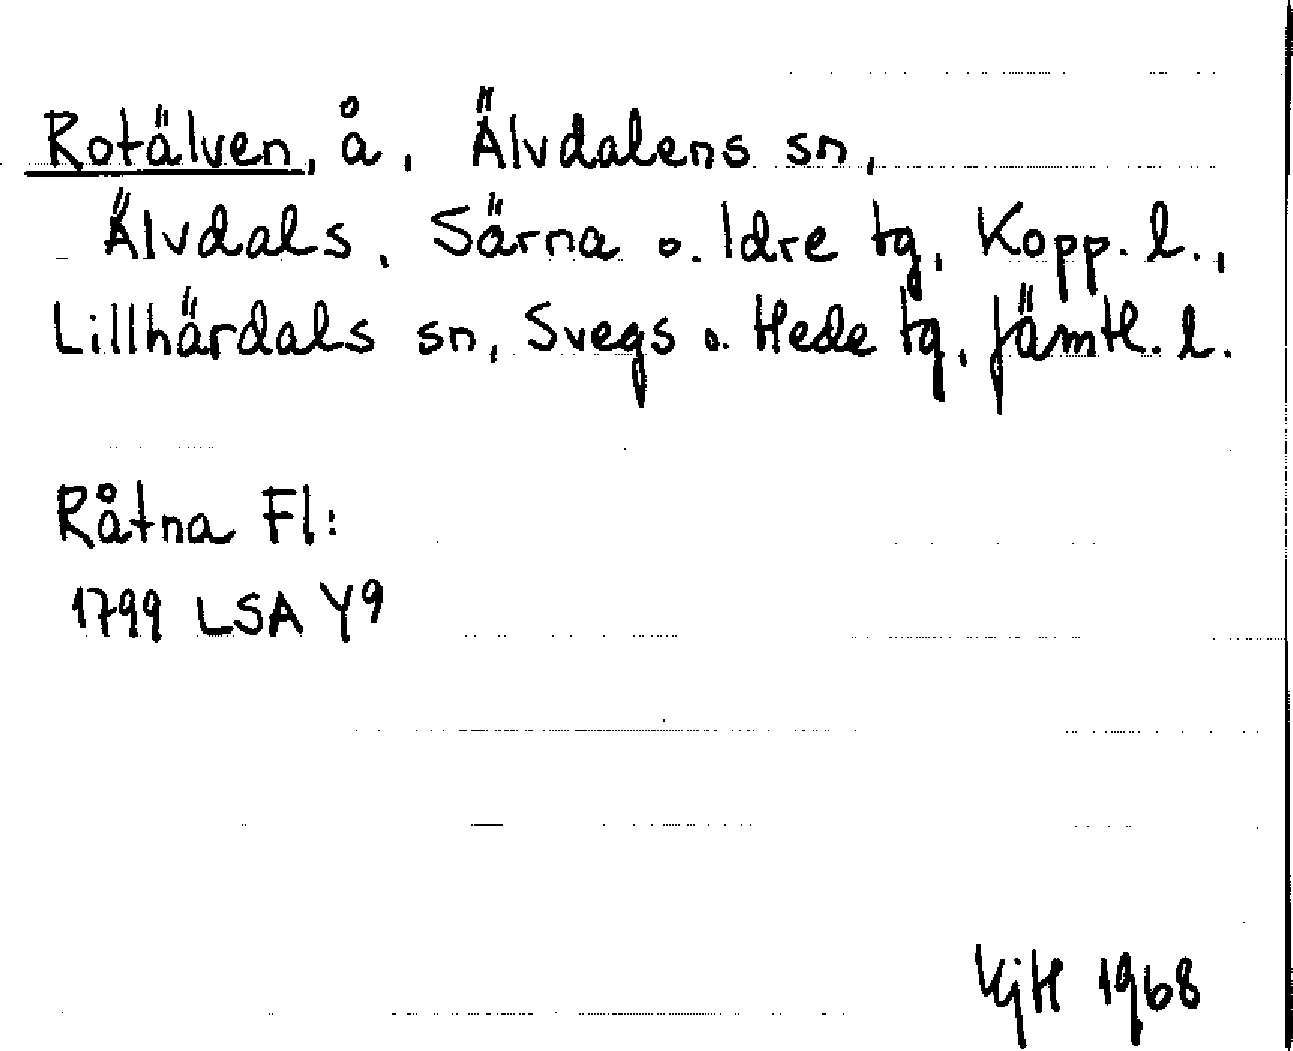 Rotälven, å, Älvdalens sn,
Älvdals, Särna o. Idre tg, Kopp. l.,
Lillhärdals sn, Svegs o. Hede tg, Jämtl. l.
Råtna Fl:
1799 LSA Y9
KjH 1968